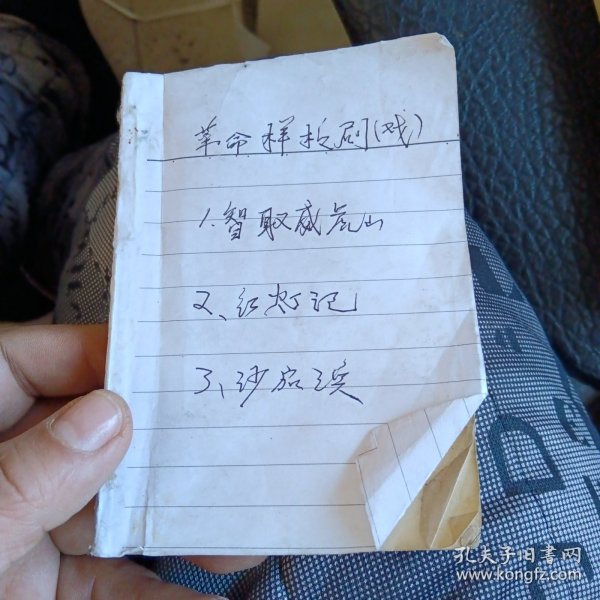 革命样板剧(戏)
1.智取威虎山
2、红灯记
3、沙家浜
孔夫子旧书网
www.kongfz.com